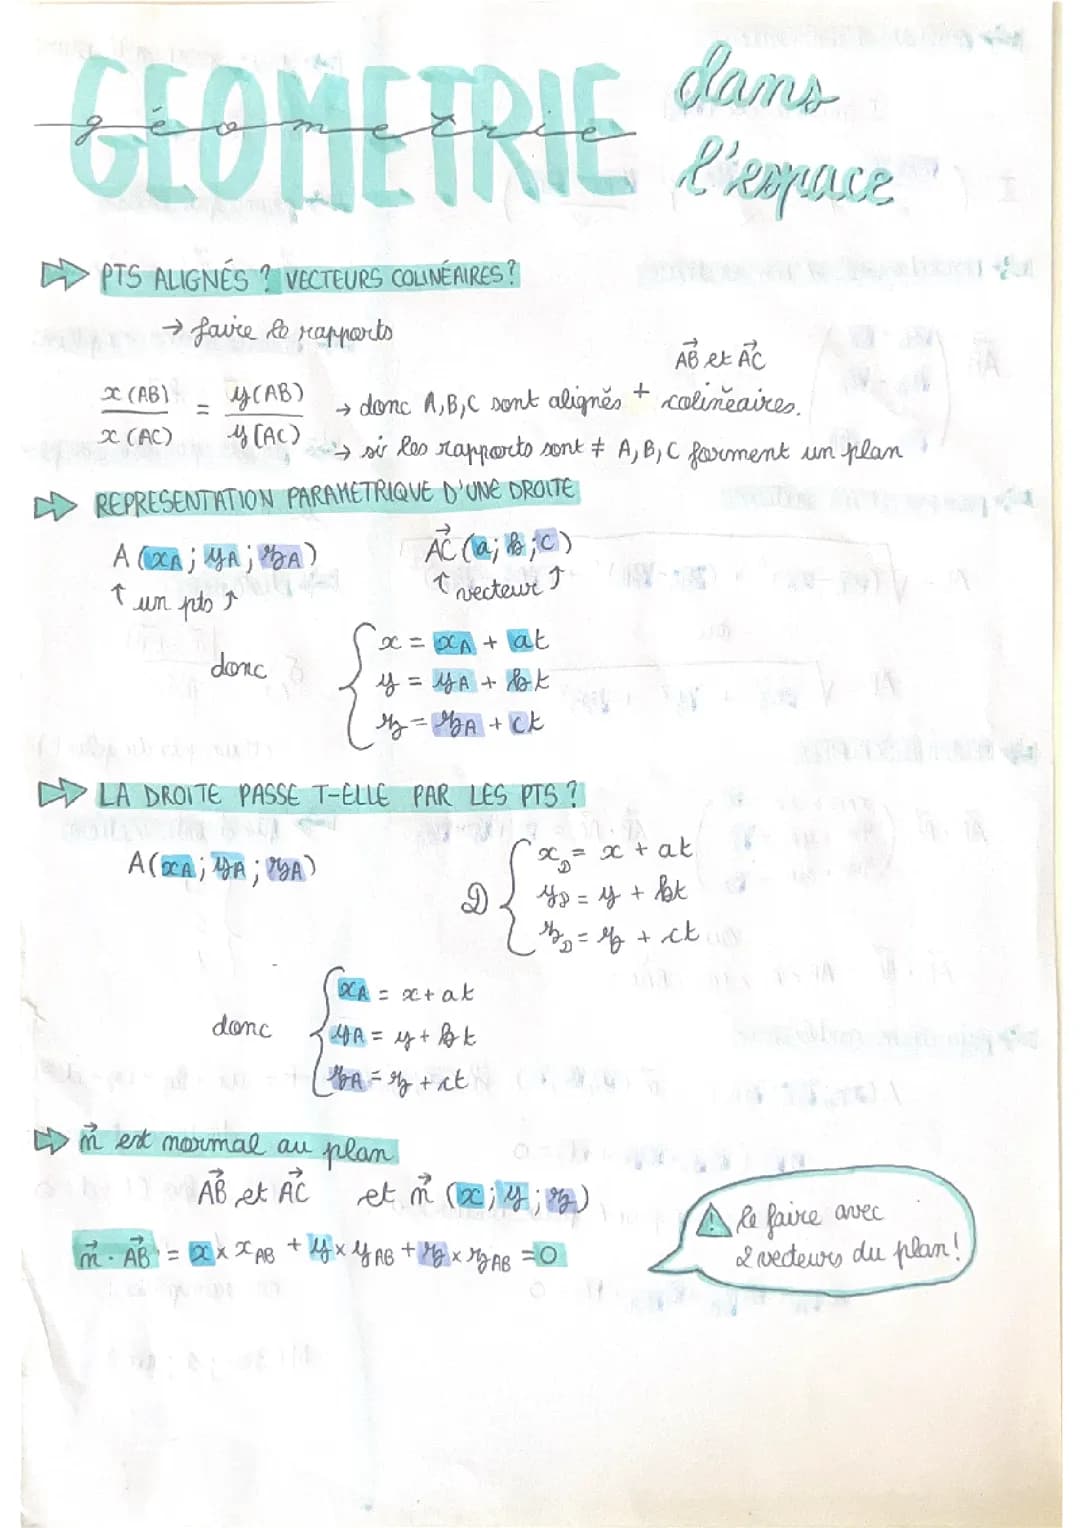 GEOMETRIE dans
géometrie
l'espace
PTS ALIGNÉS ? VECTEURS COLINÉAIRES ?
→ faire le rapports
x(AB)/x(AC) = y(AB)/y(AC) → donc A,B,C sont alignés + AB et AC colinéaires.
→ si les rapports sont ≠ A,B,C forment un plan
REPRESENTATION PARAMETRIQUE D'UNE DROITE
A (xA ; yA ; zA) AC (a; b; c)
↑ un pts ↑ ↑ vecteur ↑
donc { x = xA + at
y = yA + bt
z = zA + ct
LA DROITE PASSE T-ELLE PAR LES PTS ?
A(xA ; yA ; zA) D { xD = x + at
yD = y + bt
zD = z + ct
donc { xA = x + at
yA = y + bt
zA = z + ct
n est normal au plan
AB et AC et n (x ; y ; z)
n · AB = x × xAB + y × yAB + z × zAB = 0
⚠ le faire avec
2 vecteurs du plan !